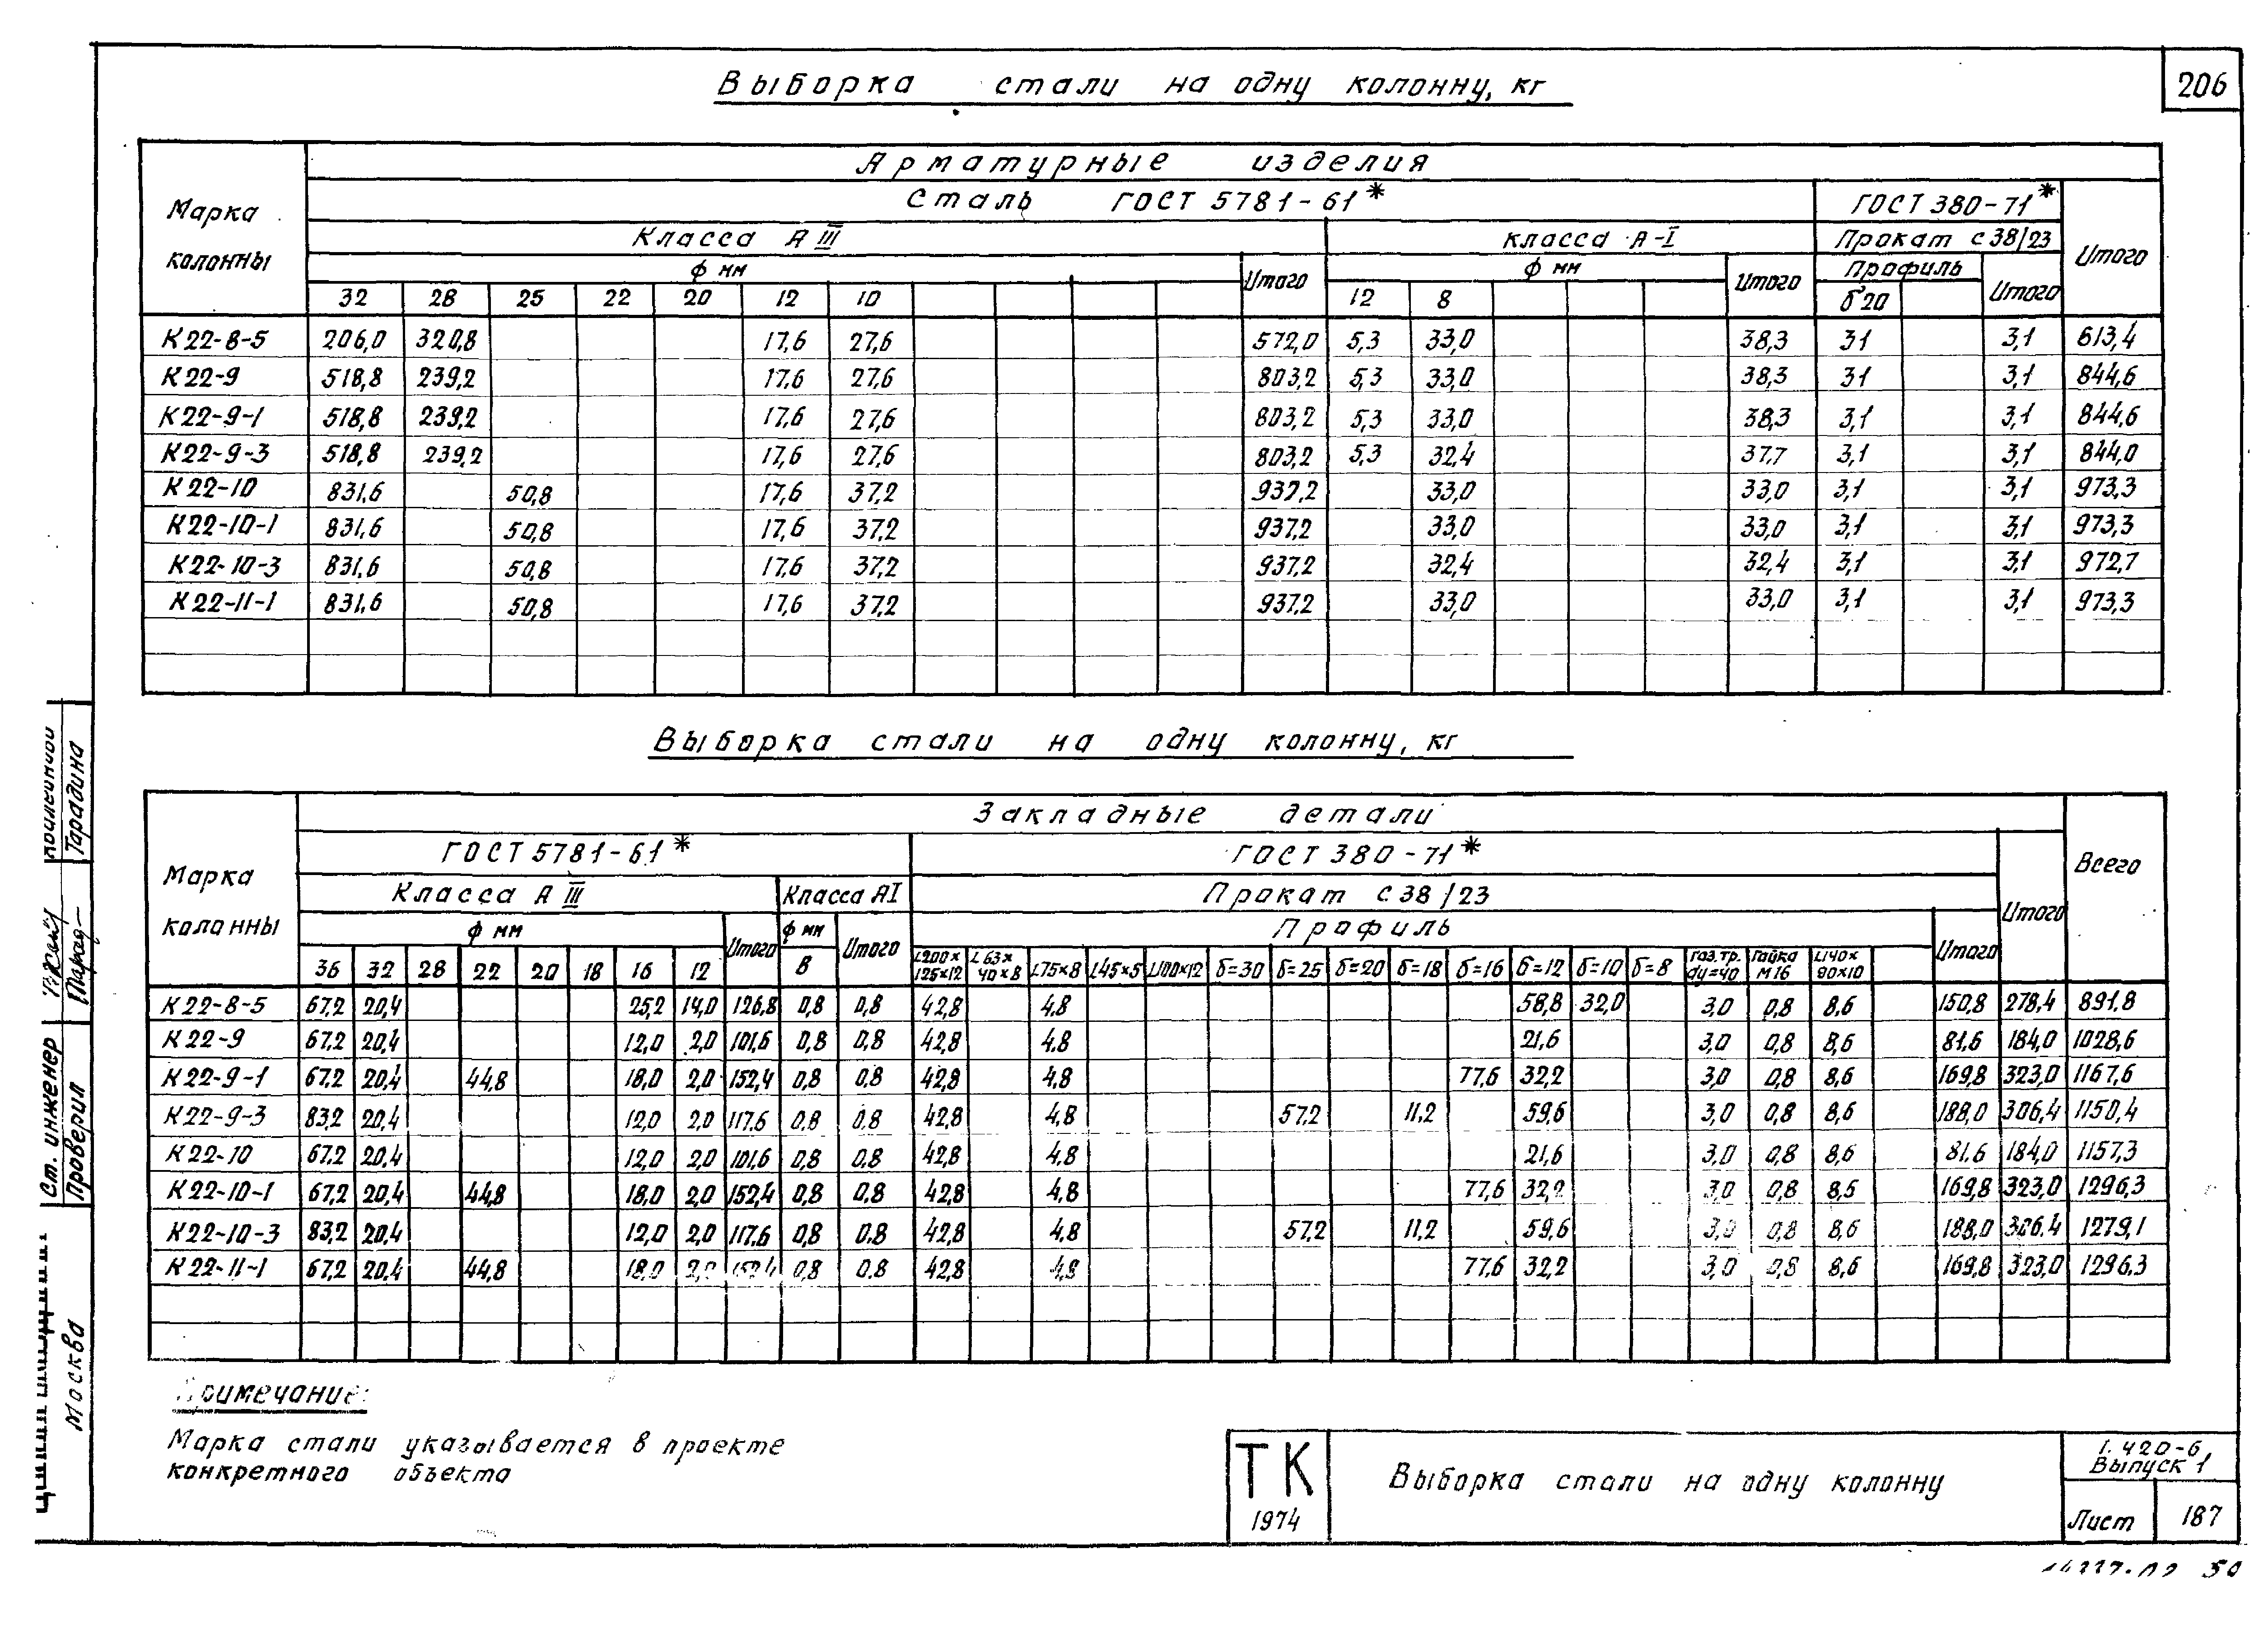 206
Выборка стали на одну колонну, кг
Марка колонны
Арматурные изделия
Сталь ГОСТ 5781-61* ГОСТ 380-71* Итого
Класса А III класса А-I Прокат с 38/23
ф мм Итого ф мм Итого Профиль Итого
32 28 25 22 20 12 10 12 8 δ20
К22-8-5 206,0 320,8 17,6 27,6 572,0 5,3 33,0 38,3 31 3,1 613,4
К22-9 518,8 239,2 17,6 27,6 803,2 5,3 33,0 38,3 31 3,1 844,6
К22-9-1 518,8 239,2 17,6 27,6 803,2 5,3 33,0 38,3 3,1 3,1 844,6
К22-9-3 518,8 239,2 17,6 27,6 803,2 5,3 32,4 37,7 3,1 3,1 844,0
К22-10 831,6 50,8 17,6 37,2 937,2 33,0 33,0 3,1 3,1 973,3
К22-10-1 831,6 50,8 17,6 37,2 937,2 33,0 33,0 3,1 3,1 973,3
К22-10-3 831,6 50,8 17,6 37,2 937,2 32,4 32,4 3,1 3,1 972,7
К22-11-1 831,6 50,8 17,6 37,2 937,2 33,0 33,0 3,1 3,1 973,3
Выборка стали на одну колонну, кг
Марка колонны
Закладные детали Всего
ГОСТ 5781-61* ГОСТ 380-71* Итого
Класса А III Класса АI Прокат с 38/23
ф мм Итого ф мм Итого Профиль Итого
36 32 28 22 20 18 16 12 8 L200×125×12 L63×40×8 L75×8 L45×5 L100×12 δ=30 δ=25 δ=20 δ=18 δ=16 δ=12 δ=10 δ=8 Газ.тр. dу=40 Гайка М16 L140×90×10
К22-8-5 67,2 20,4 25,2 14,0 126,8 0,8 0,8 42,8 4,8 58,8 32,0 3,0 0,8 8,6 150,8 278,4 891,8
К22-9 67,2 20,4 12,0 2,0 101,6 0,8 0,8 42,8 4,8 21,6 3,0 0,8 8,6 81,6 184,0 1028,6
К22-9-1 67,2 20,4 44,8 18,0 2,0 152,4 0,8 0,8 42,8 4,8 77,6 32,2 3,0 0,8 8,6 169,8 323,0 1167,6
К22-9-3 83,2 20,4 12,0 2,0 117,6 0,8 0,8 42,8 4,8 57,2 11,2 59,6 3,0 0,8 8,6 188,0 306,4 1150,4
К22-10 67,2 20,4 12,0 2,0 101,6 0,8 0,8 42,8 4,8 21,6 3,0 0,8 8,6 81,6 184,0 1157,3
К22-10-1 67,2 20,4 44,8 18,0 2,0 152,4 0,8 0,8 42,8 4,8 77,6 32,2 3,0 0,8 8,6 169,8 323,0 1296,3
К22-10-3 83,2 20,4 12,0 2,0 117,6 0,8 0,8 42,8 4,8 57,2 11,2 59,6 3,0 0,8 8,6 188,0 306,4 1279,1
К22-11-1 67,2 20,4 44,8 18,0 2,0 152,4 0,8 0,8 42,8 4,8 77,6 32,2 3,0 0,8 8,6 169,8 323,0 1296,3
Примечание:
Марка стали указывается в проекте
конкретного объекта
ТК
1974
Выборка стали на одну колонну
1.420-6
Выпуск 1
Лист 187
50
Тарадина
Ст. инженер
Проверил
Москва